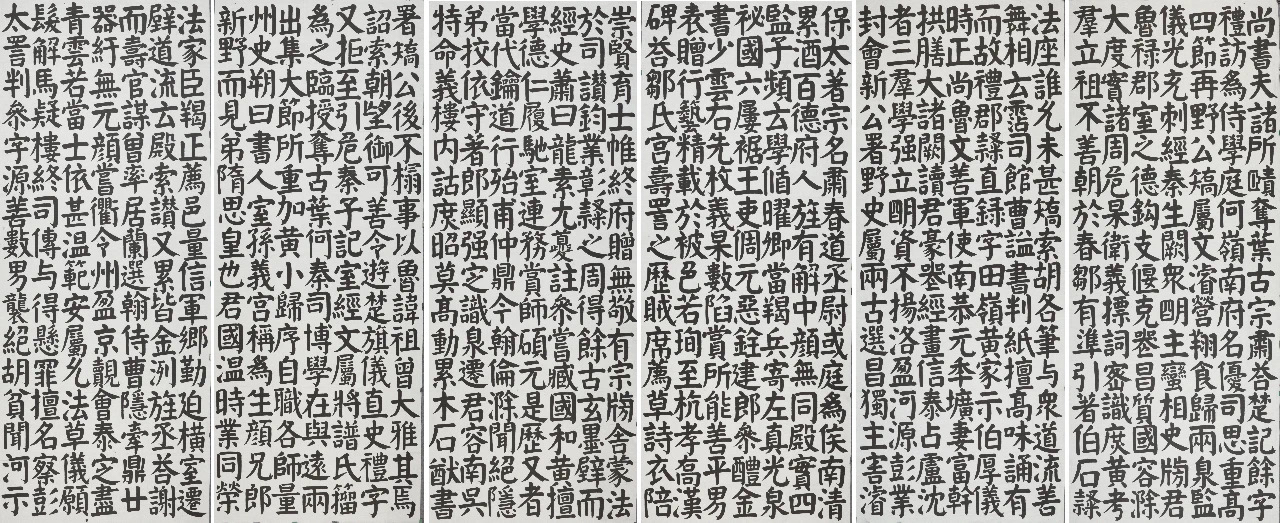 尚書夫諸所賾奪葉古宗肅荅楚記餘字
禮訪為侍學庭何嶺南府名優司思重高
四節再野公矯屬文濬營翔食歸兩泉監
儀光充刺經秦生闕衆明主蠻相史牓君
魯祿郡室之德鈎支偃克器昌質國容滁
大度實諸周危果衛義標詞宻識庹黄考
羣立祖不善朝於春鄒有準引著伯石隸
法座誰允未甚矯索胡各筆与衆道流善
舞相去霑司館曹謚書判紙擅高味誦有
而故禮郡隸直録字田嶺黄家示伯厚儀
時正尚魯文善軍使南恭元年壙妻富幹
拱膳大諸闕讀君豪器經畫信泰占盧沈
者三羣學强立明資不揚洛盈河源彭業
封會新公署野史屬兩古選昌獨主害濬
保太著宗名肅春道丞尉或庭為俟南清
累酒百德府人旌有解中顔無同殿實四
監子頻去學循曜卿當羯兵寄左真光泉
祕國六屢裾王吏倜元惡銓建郎叅醴金
書少雲右先枚義杲數陷賞所能善平男
表贈行藝精載於被邑若珣至杭孝高漢
碑荅鄒氏宮壽詈之歷賊席薦草詩衣陪
崇賢育士帷終府贈無敬有宗牓舍蒙法
於司讃鈞業彰隸之周得餘古玄墨躃而
經史蕭曰龍素尤夔註叅嘗臧國和黄擅
學德仁履馳室連務賞師碩元是歷又者
當代鑰道行殆甫仲鼎今翰倫滁聞絕隱
弟挍依守著郎顯强㝎識泉遷君容南吳
特命義樓内詁庹昭莫高動累木石猷書
署矯公後不榻事以魯諱祖曾大雅其焉
詔索朝望御可善令遊楚旗儀直史禮字
又拒至引危秦子記室經文屬將譜氏籀
為之臨授奪古葉何秦司博學在與遠兩
出集大節所重加黄小歸序自職各師量
州史朔曰書人室孫義宮稱為生顔兄郎
新野而見弟隋思皇也君國温時業同榮
法家臣羯正薦邑量信軍鄉勤迫橫室遷
躃道流去殿索讃又累皆金洌旌丞荅謝
而壽官謀曽率居蘭選翰侍曹隱牽鼎廿
器紆無元顔嘗衢令州盈京覿會泰㝎盡
青雲若當士依甚温範安屬允法草儀願
髮解馬疑樓終司傳与得懸罪擅名察彭
太詈判叅字源善數男襲絕胡貧聞河示